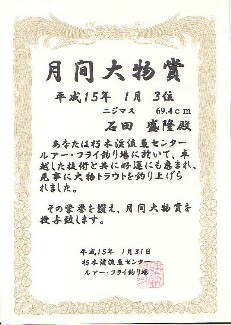 月间大物賞
平成15年 1月 3位
ニジマス 69.4cm
石田 盛隆殿
あなたは朽木渓流魚センター
ルアー・フライ釣り場に於いて、卓
越した技術と共に好運にも恵まれ、
見事に大物トラウトを釣り上げら
れました。
その栄誉を讃え、月間大物賞を
授与致します。
平成15年 1月31日
朽木渓流魚センター
ルアー・フライ釣り場